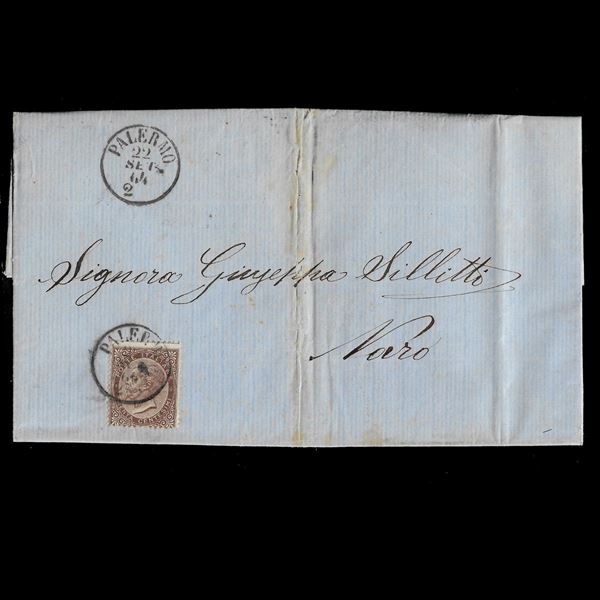 PALERMO
22
SET
64
2
Signora Giuseppa Sillitti
Naro
PALERMO
CENTESIMI